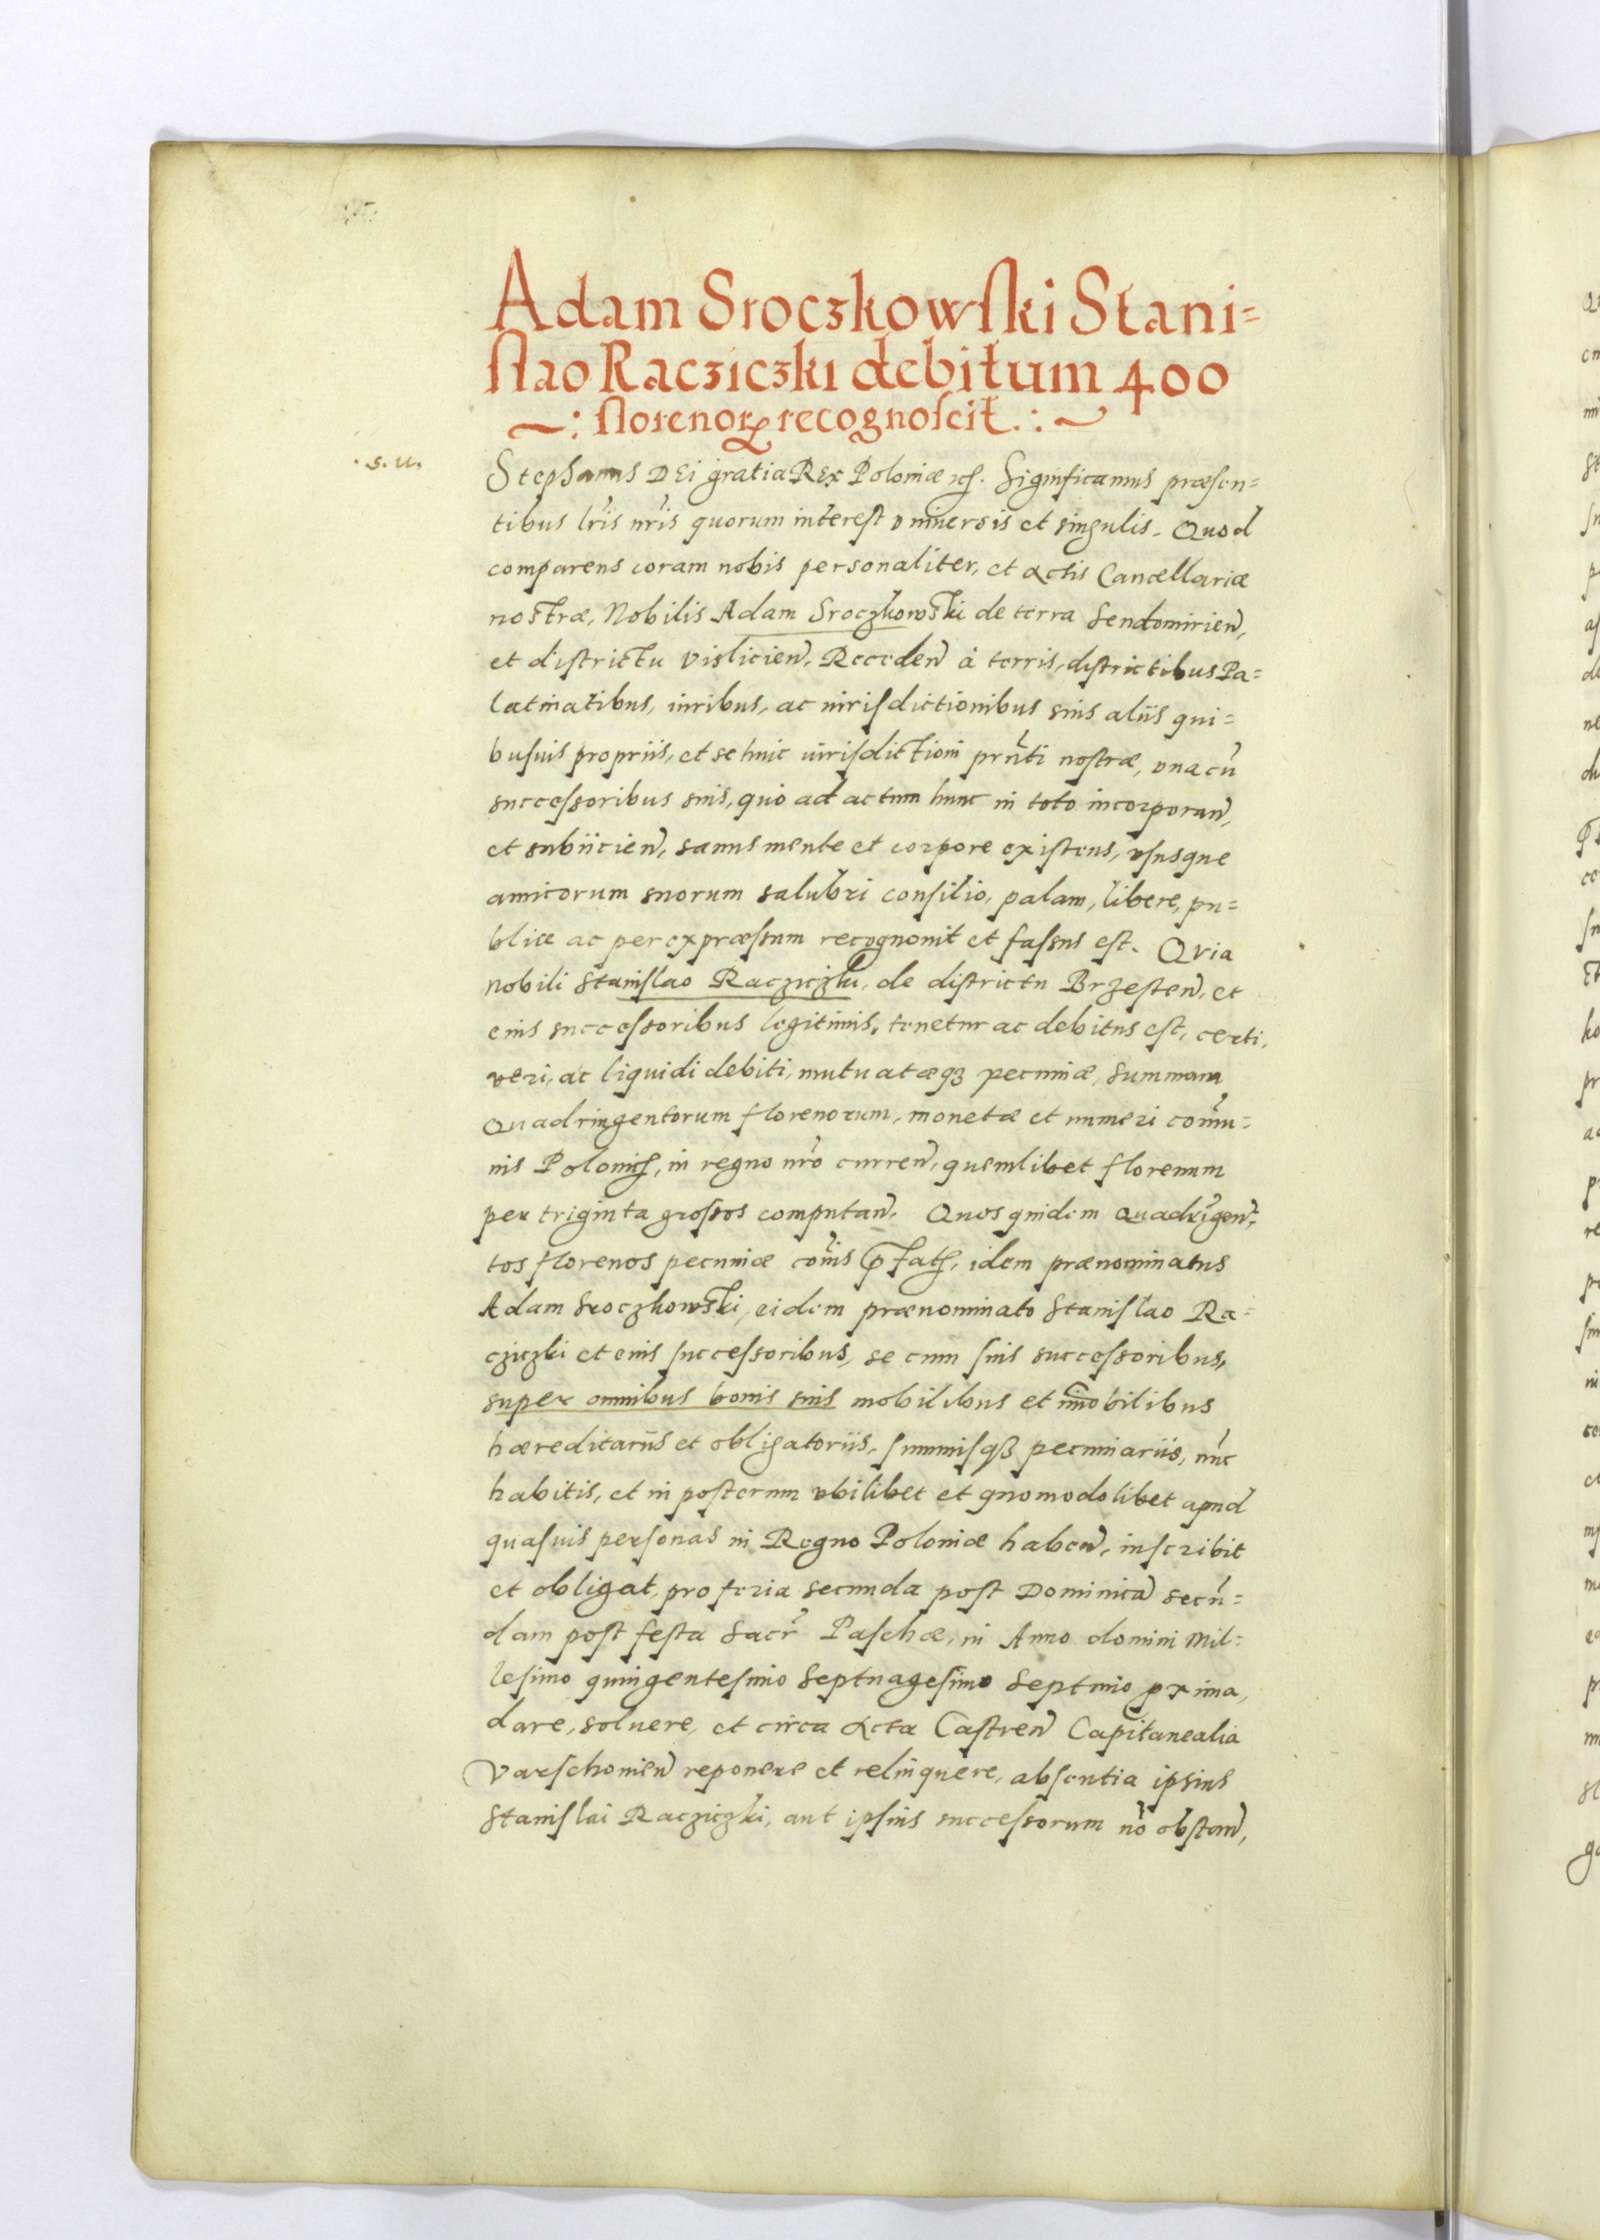 Adam Sroczkowski Stani=
slao Racziczki debitum 400
florenorꝝ recognoscit
. S. u.
Stephanus DEi gratia REx Poloniæ ꝛcȝ. Significamus præsen=
tibus lr̃is nr̃is quorum interest vniuersis et singulis. Quod
comparens coram nobis personaliter, et actis Cancellariæ
nostræ, Nobilis Adam Sroczkowski de terra Sendomirien̄,
et districtu Vislicien̄. Receden̄ à terris, districtibus Pa=
latinatibus, iuribus, ac iurisdictionibus suis aliis qui=
busuis propriis, et se huic iurisdictioni prn̄ti nostræ, vna cū
successoribus suis, quo ad actum hunc in toto incorporan̄,
et subiicien̄, sanus mente et corpore existens, vsusque
amicorum suorum salubri consilio, palam, libere, pu=
blice ac per expræssum recognouit et fassus est. Qvia
Nobili Stanislao Racziczki, de districtu Brzesten̄, et
eius successoribus legitimis, tenetur ac debitus est, certi,
veri, ac liquidi debiti, mutuatæqꝫ pecuniæ, summam
Quadringentorum florenorum, monetæ et numeri com̄u=
nis Polonicȝ, in regno nr̃o curren̄, quemlibet florenum
per triginta grossos computan̄. Quos quidem Quadrīgen=
tos florenos pecuniæ com̄is p̄fatȝ, idem prænominatus
Adam Sroczkowski, eidem prænominato Stanislao Ra=
cziczki et eius successoribus, se cum suis successoribus,
super omnibus bonis suis mobilibus et im̄obilibus
hæreditariis et obligatoriis, summisqꝫ pecuniariis, nūc
habitis, et in posterum vbilibet et quomodolibet apud
quasuis personas in Regno Poloniæ haben̄, inscribit
et obligat, pro feria secunda post Dominicā secū=
dam post festa Sacr̃ Paschæ, in Anno domini Mil=
lesimo quingentesimo Septuagesimo Septimo pxima,
dare, soluere, et circa Acta Castren̄ Capitanealia
Varschouien̄ reponere et relinquere, absentia ipsius
Stanislai Racziczki, aut ipsius successorum nō obstan̄,